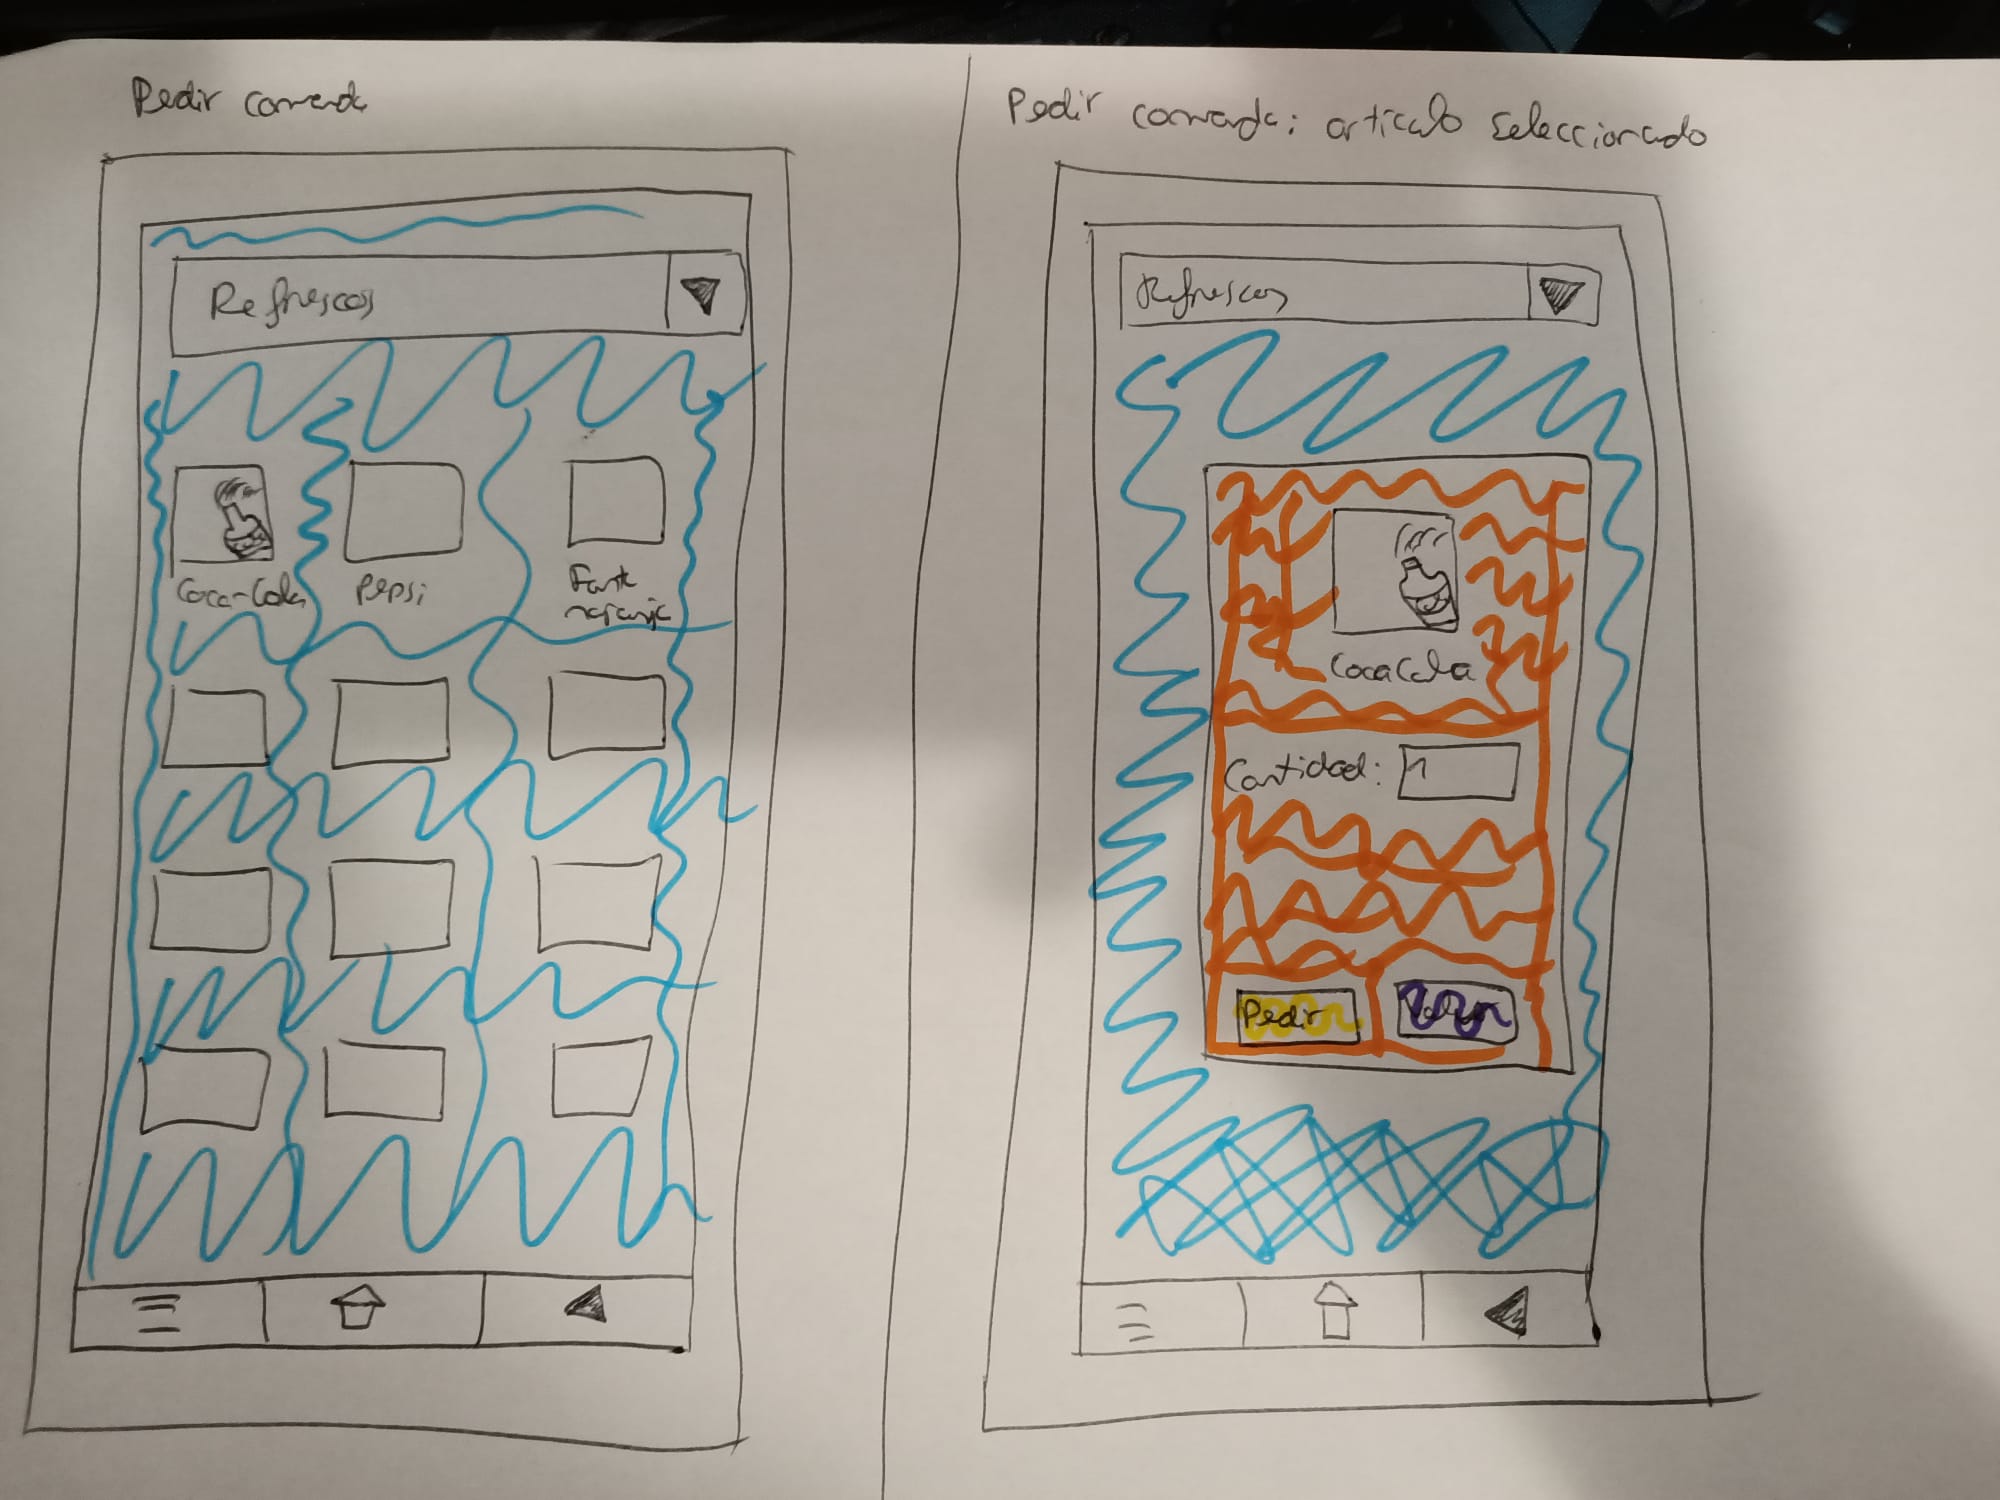 Pedir comanda
Refrescos
Coca-Cola
Pepsi
Fanta
naranja
Pedir comanda: artículo seleccionado
Refrescos
CocaCola
Cantidad: 1
Pedir